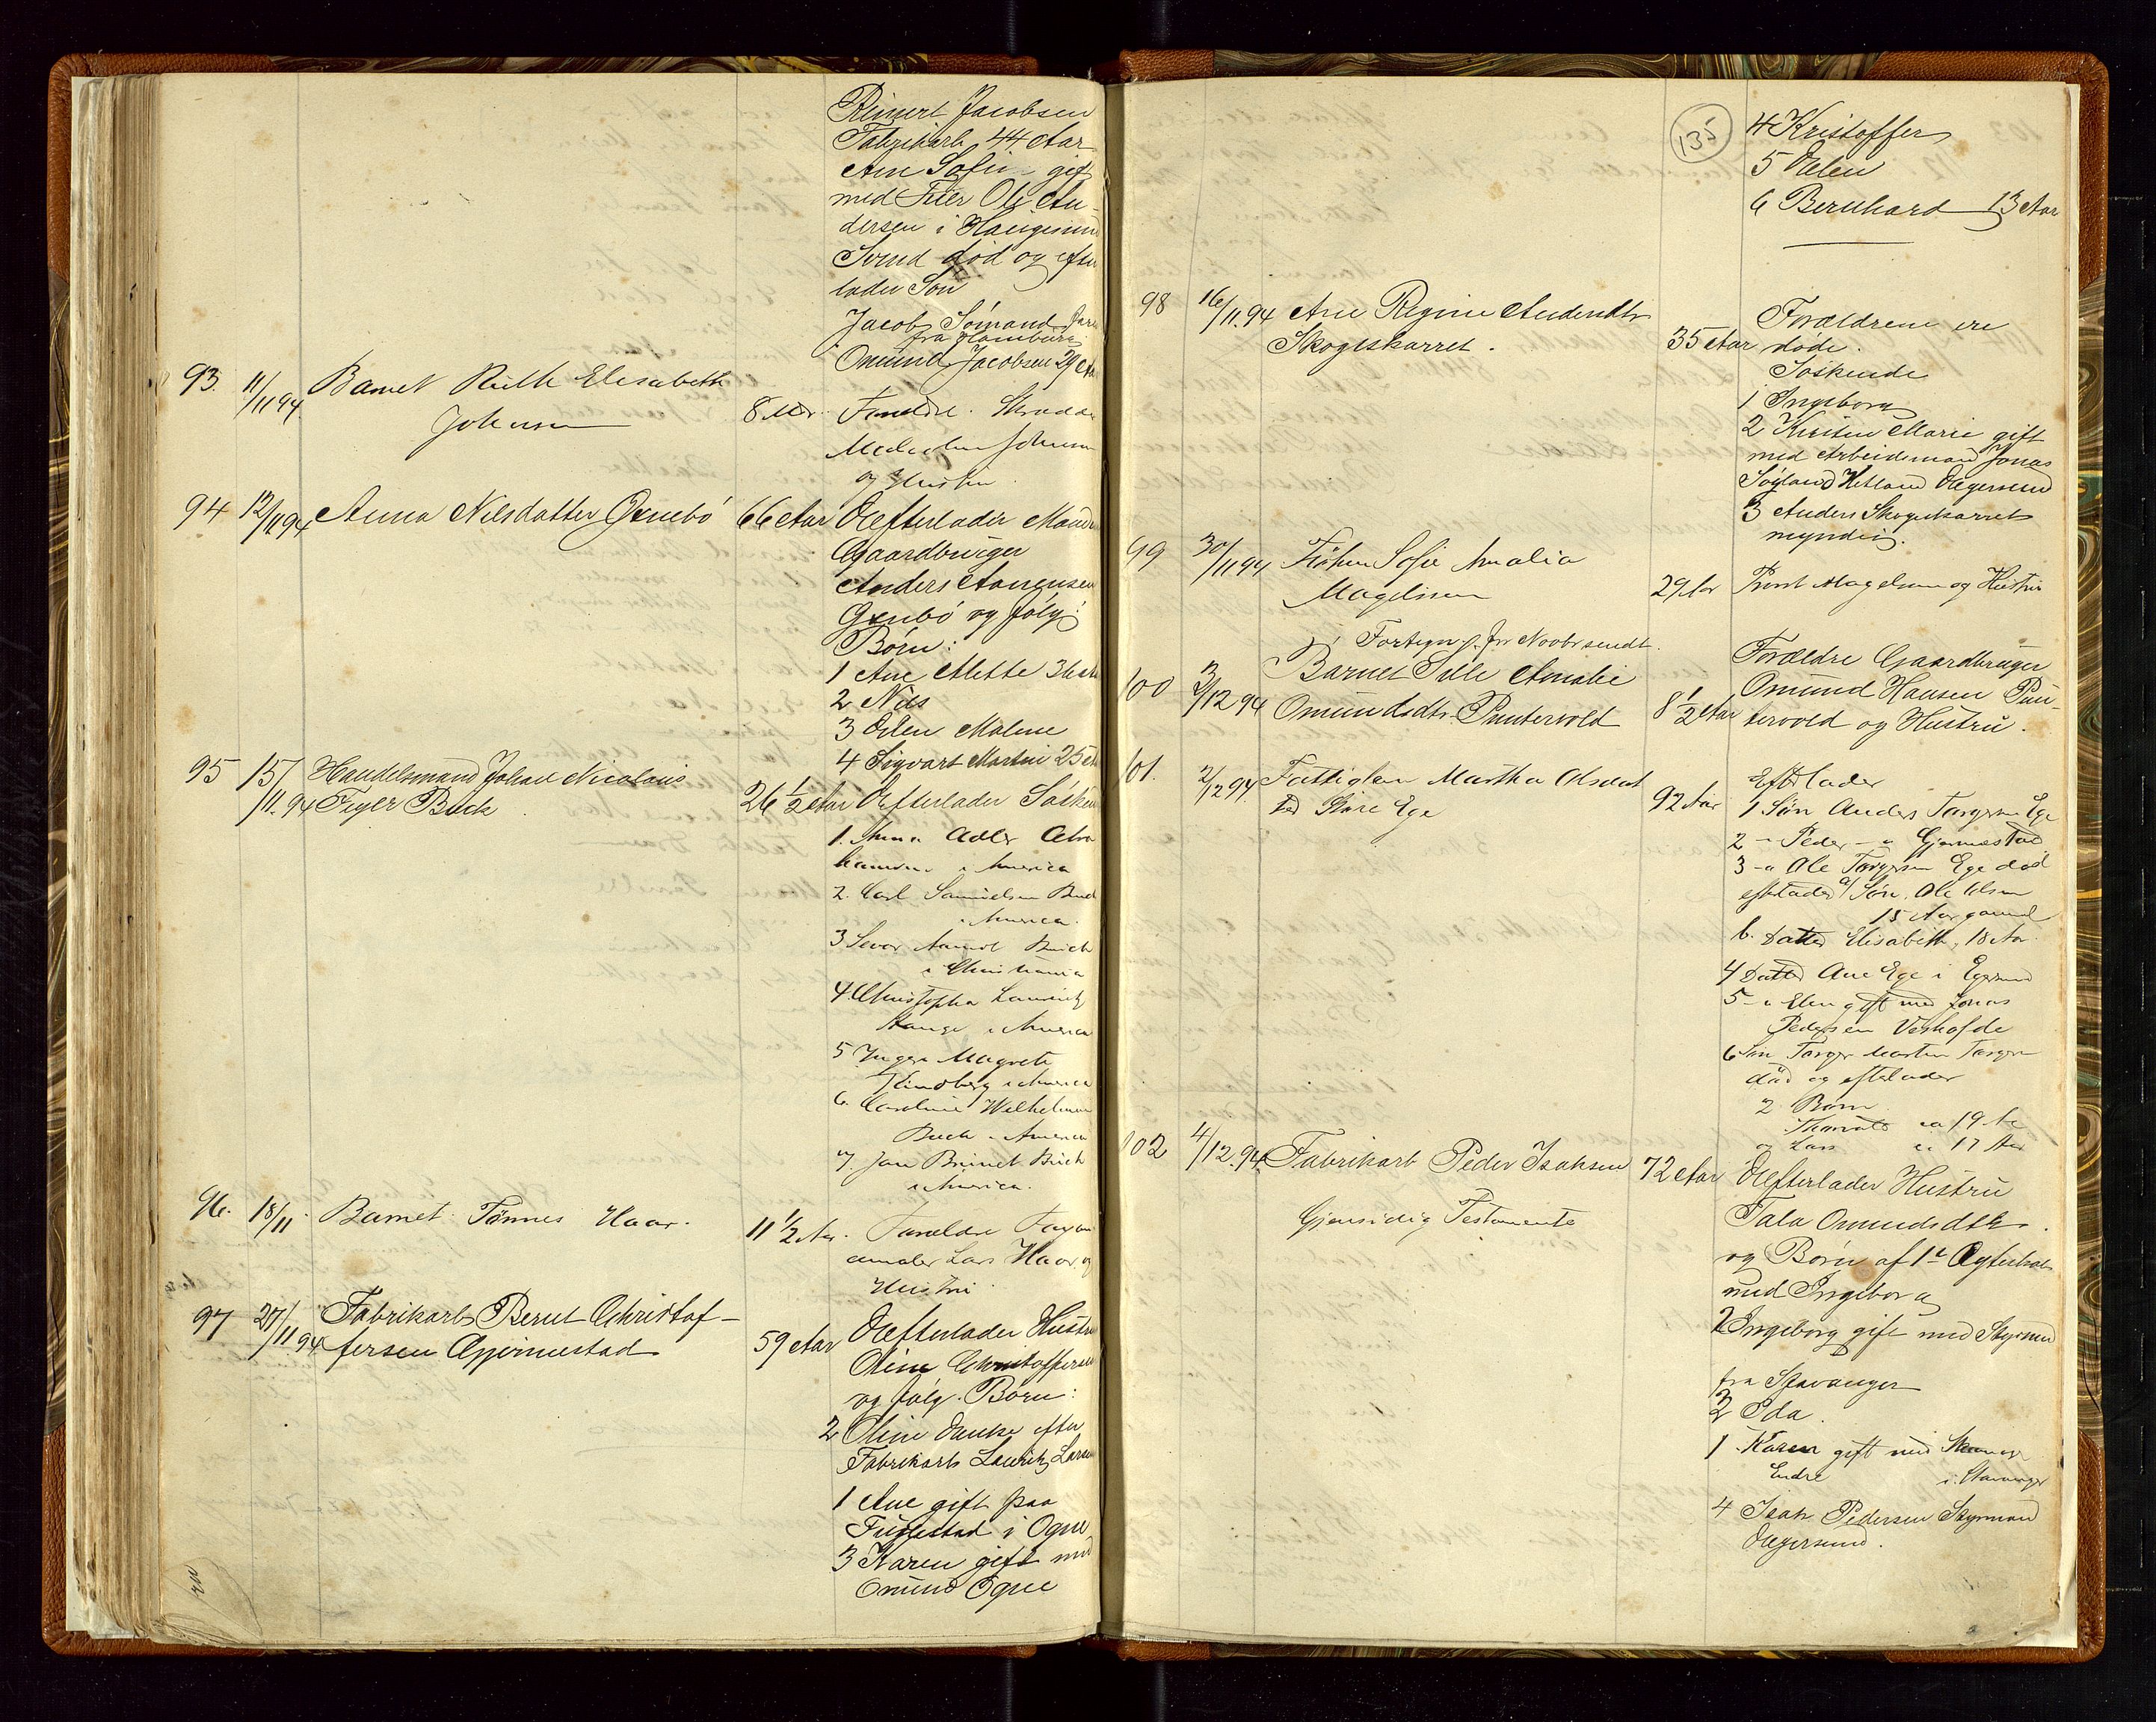 Reinert Jacobsen
Fabrikarb. 44 Aar
Ane Sofie gift
med Fier Ole An-
dersen i Haugesund
Svend død og efter
lader Søn
Jacob Sømand
fra Hamburg
Omund Jacobsen 29 Aar
93. 11/11 94. Barnet Ruth Elisabeth
Johnsen 8 Mdr. Forældre. Skrædder
Johnsen
og Hustru.
94 12/11 94 Anna Nilsdatter Grøsebø 66 Aar Efterlader Manden
Gaardbruger
Anders Aanensen
og følg:
Børn:
1 Ane Mette 36 Aar
2 Nils
3 Elen Malene
4 Sigvart Martin 25 Aar
95 15/11. 94 Handelsmand Johan Nicolaus
Feyer Buch 26 1/2 Aar Efterlader Søskende
1. Anna Adler Abra
hamsen i America
2. Carl Samuelsen Buch
i America.
3 Buch
i Christiania
4 Christopha Lauritz
Stange i America
5 Inger Magrete
i America
6. Caroline Wilhelmine
Buch i America
7. Buch
i America.
96. 18/11. Barnet Tønnes Haar. 11 1/2 Aar. Forældre
Lars Haar og
Hustru.
97 27/11 94 Fabrikarb. Bernt Christof-
fersen Gjermestad 59 Aar Efterlader Hustru
Oline Christoffersen
og følg. Børn:
2 Oline Enke efter
Fabrikarb Lauritz Larsen
1 Ane gift paa
Fuglestad i Ogne
3 Karen gift med
Omund Ogne
135
4 Kristoffer
5 Elen
6 Bernhard 13 Aar
98 16/11. 94 Ane Regine Andersdtr
Skogeskarret. 35 Aar Forældrene ere
døde.
Søskende
1 Ingeborg
2 Kirsten Marie gift
med Arbeidsmand Jonas
Søyland Hetland Egersund
3 Anders Skogeskarret
myndig.
99 30/11 94 Frøken Sofie Amalia
Magelssen 29 Aar Provst Magelssen og Hustru
Fortegn. f. Novbr sendt.
100 3/12 94 Barnet Sille Amalie
Omundsdtr. Puntervold 8 1/2 Aar Forældre Gaardbruger
Omund Hansen Pun-
tervold og Hustru.
101. 2/12 94. Fattiglem Martha Olsdat
ter Store Ege 92 Aar Efterlader
1 Søn Anders Torgersen Ege
2 - Peder - " Gjermestad
3 - " Ole Torgersen Ege død
efterlader a/ Søn, Ole Olsen
15 Aar gammel
b. Datter Elisabeth, 18 Aar.
4 Datter Ane Ege i Egersund
5 - " Elen gift med Jonas
Pedersen
6 Søn Torger Martin
død og efterlader
2 Børn
ca 19 Aar
og Lars ca 17 Aar
102 4/12. 94 Fabrikarb Peder Isaksen 72 Aar Efterlader Hustru
Gjensidig Testamente Tala Omundsdtr.
og Børn af 1te Ægteskab
med Ingeborg
2 Ingeborg gift med Styrmd
fra Stavanger
3 Ida.
1 Karen gift med
Endre i Stavanger
4 Isak Pedersen Styrmand
Egersund.